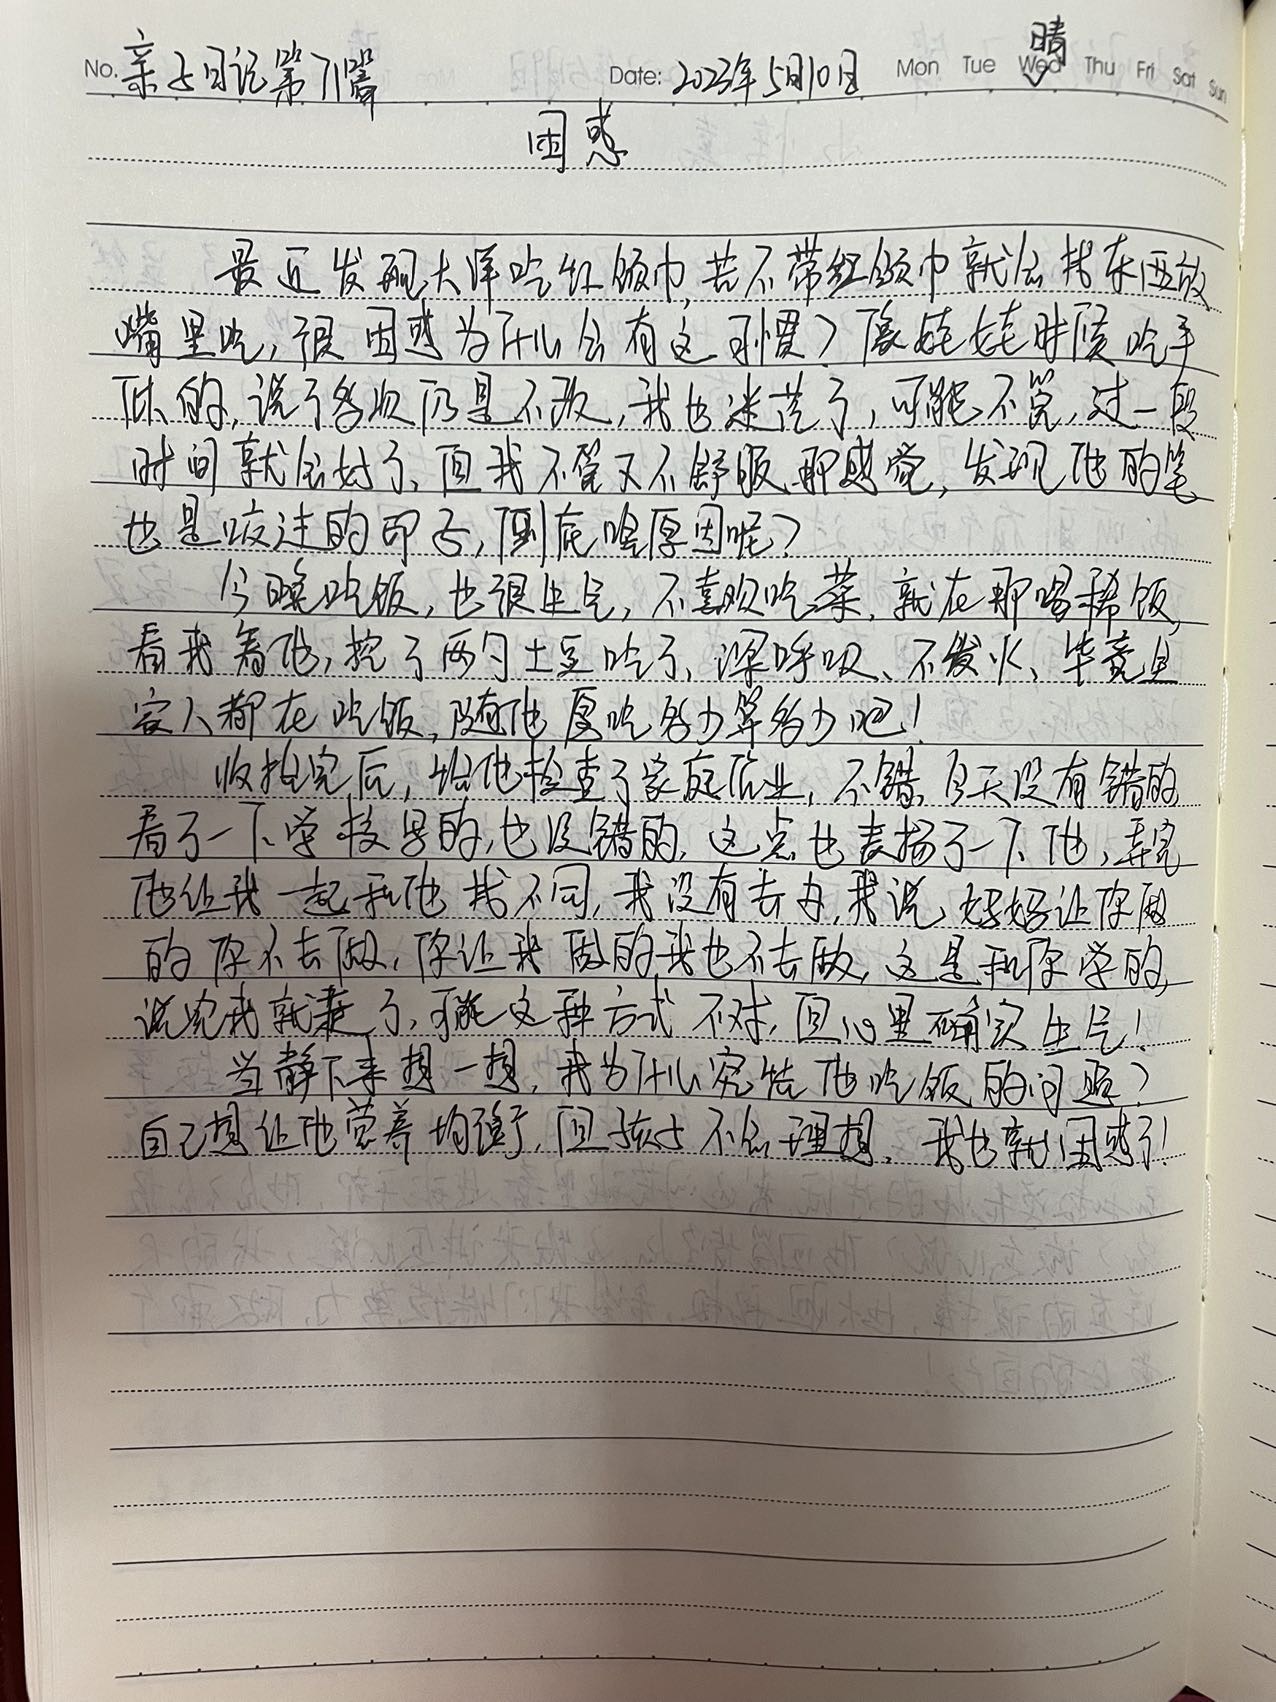 No. 亲子日记第71篇 Date: 2023年5月10日 Mon Tue Wed Thu Fri Sat Sun
晴
困惑
最近发现大洋吃红领巾,若不带红领巾就会找东西放
嘴里吃,很困惑为什么会有这习惯?像娃娃时候吃手
似的,说了多次仍是不改,我也迷茫了,可能不管,过一段
时间就会好了,但我不管又不舒服那感觉,发现他的笔
也是咬过的印子,到底啥原因呢?
今晚吃饭,也很生气,不喜欢吃菜,就在那喝稀饭,
看我看他,挖了两勺土豆吃了,深呼吸、不发火、毕竟是
家人都在吃饭,随他愿吃多少算多少吧!
收拾完后,给他检查了家庭作业,不错,今天没有错的
看了一下学校里的,也没错的,这点也表扬了一下他,弄完
他让我一起和他找不同,我没有去办,我说,好好让你做
的你不去做,你让我做的我也不去做,这是和你学的,
说完我就走了,可能这种方式不对,但心里确实生气!
当静下来想一想,我为什么究结他吃饭的问题?
自己想让他营养均衡,但孩子不会理想,我也就困惑了!